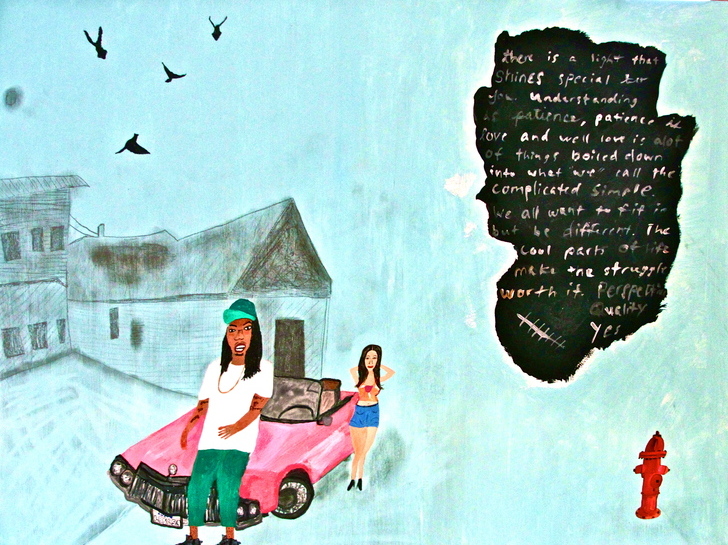 there is a light that
SHINES special for
you. understanding
is patience, patience is
love and well love is alot
of things boiled down
into what "we" call the
complicated simple.
We all want to fit in
but be different. The
cool parts of life
make the struggle
worth it.
Quality
Yes